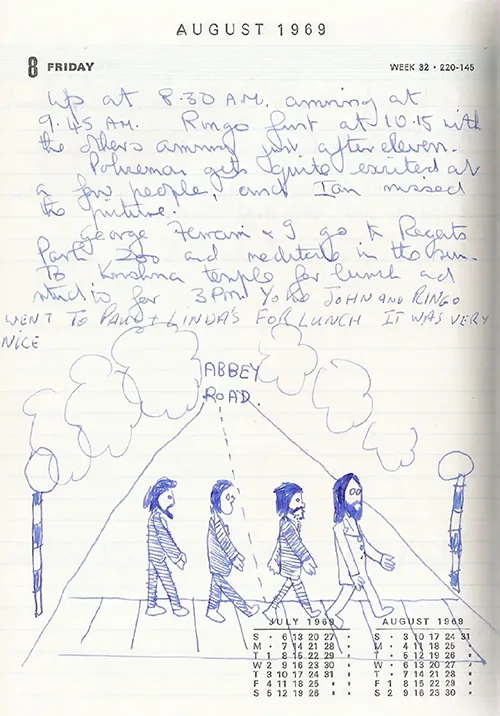 AUGUST 1969
8 FRIDAY
WEEK 32 • 220-145
Up at 8.30 A.M. arriving at
9.45 AM. Ringo first at 10.15 with
the others arriving just after eleven.
Policeman gets quite excited at
a few people, and Ian missed
the picture.
George Ferrari & I go to Regents
Park Zoo and meditate in the sun.
To Krishna temple for lunch and
studio for 3PM YOKO JOHN AND RINGO
WENT TO PAUL + LINDA'S FOR LUNCH IT WAS VERY
NICE
ABBEY
ROAD.
JULY 1969
S • 6 13 20 27
M • 7 14 21 28
T 1 8 15 22 29
W 2 9 16 23 30
T 3 10 17 24 31
F 4 11 18 25
S 5 12 19 26
AUGUST 1969
S • 3 10 17 24 31
M • 4 11 18 25
T • 5 12 19 26
W • 6 13 20 27
T • 7 14 21 28
F 1 8 15 22 29
S 2 9 16 23 30